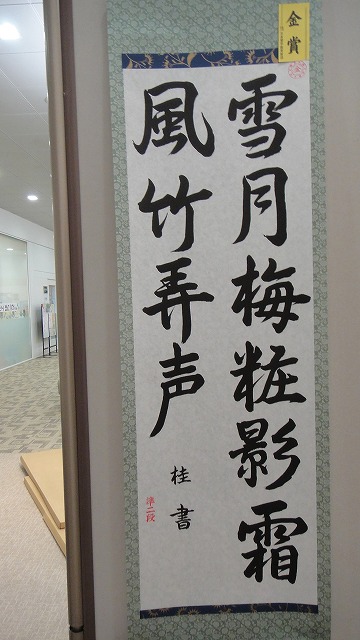 金賞
雪月梅粧影霜
風竹弄声
桂書
準二段